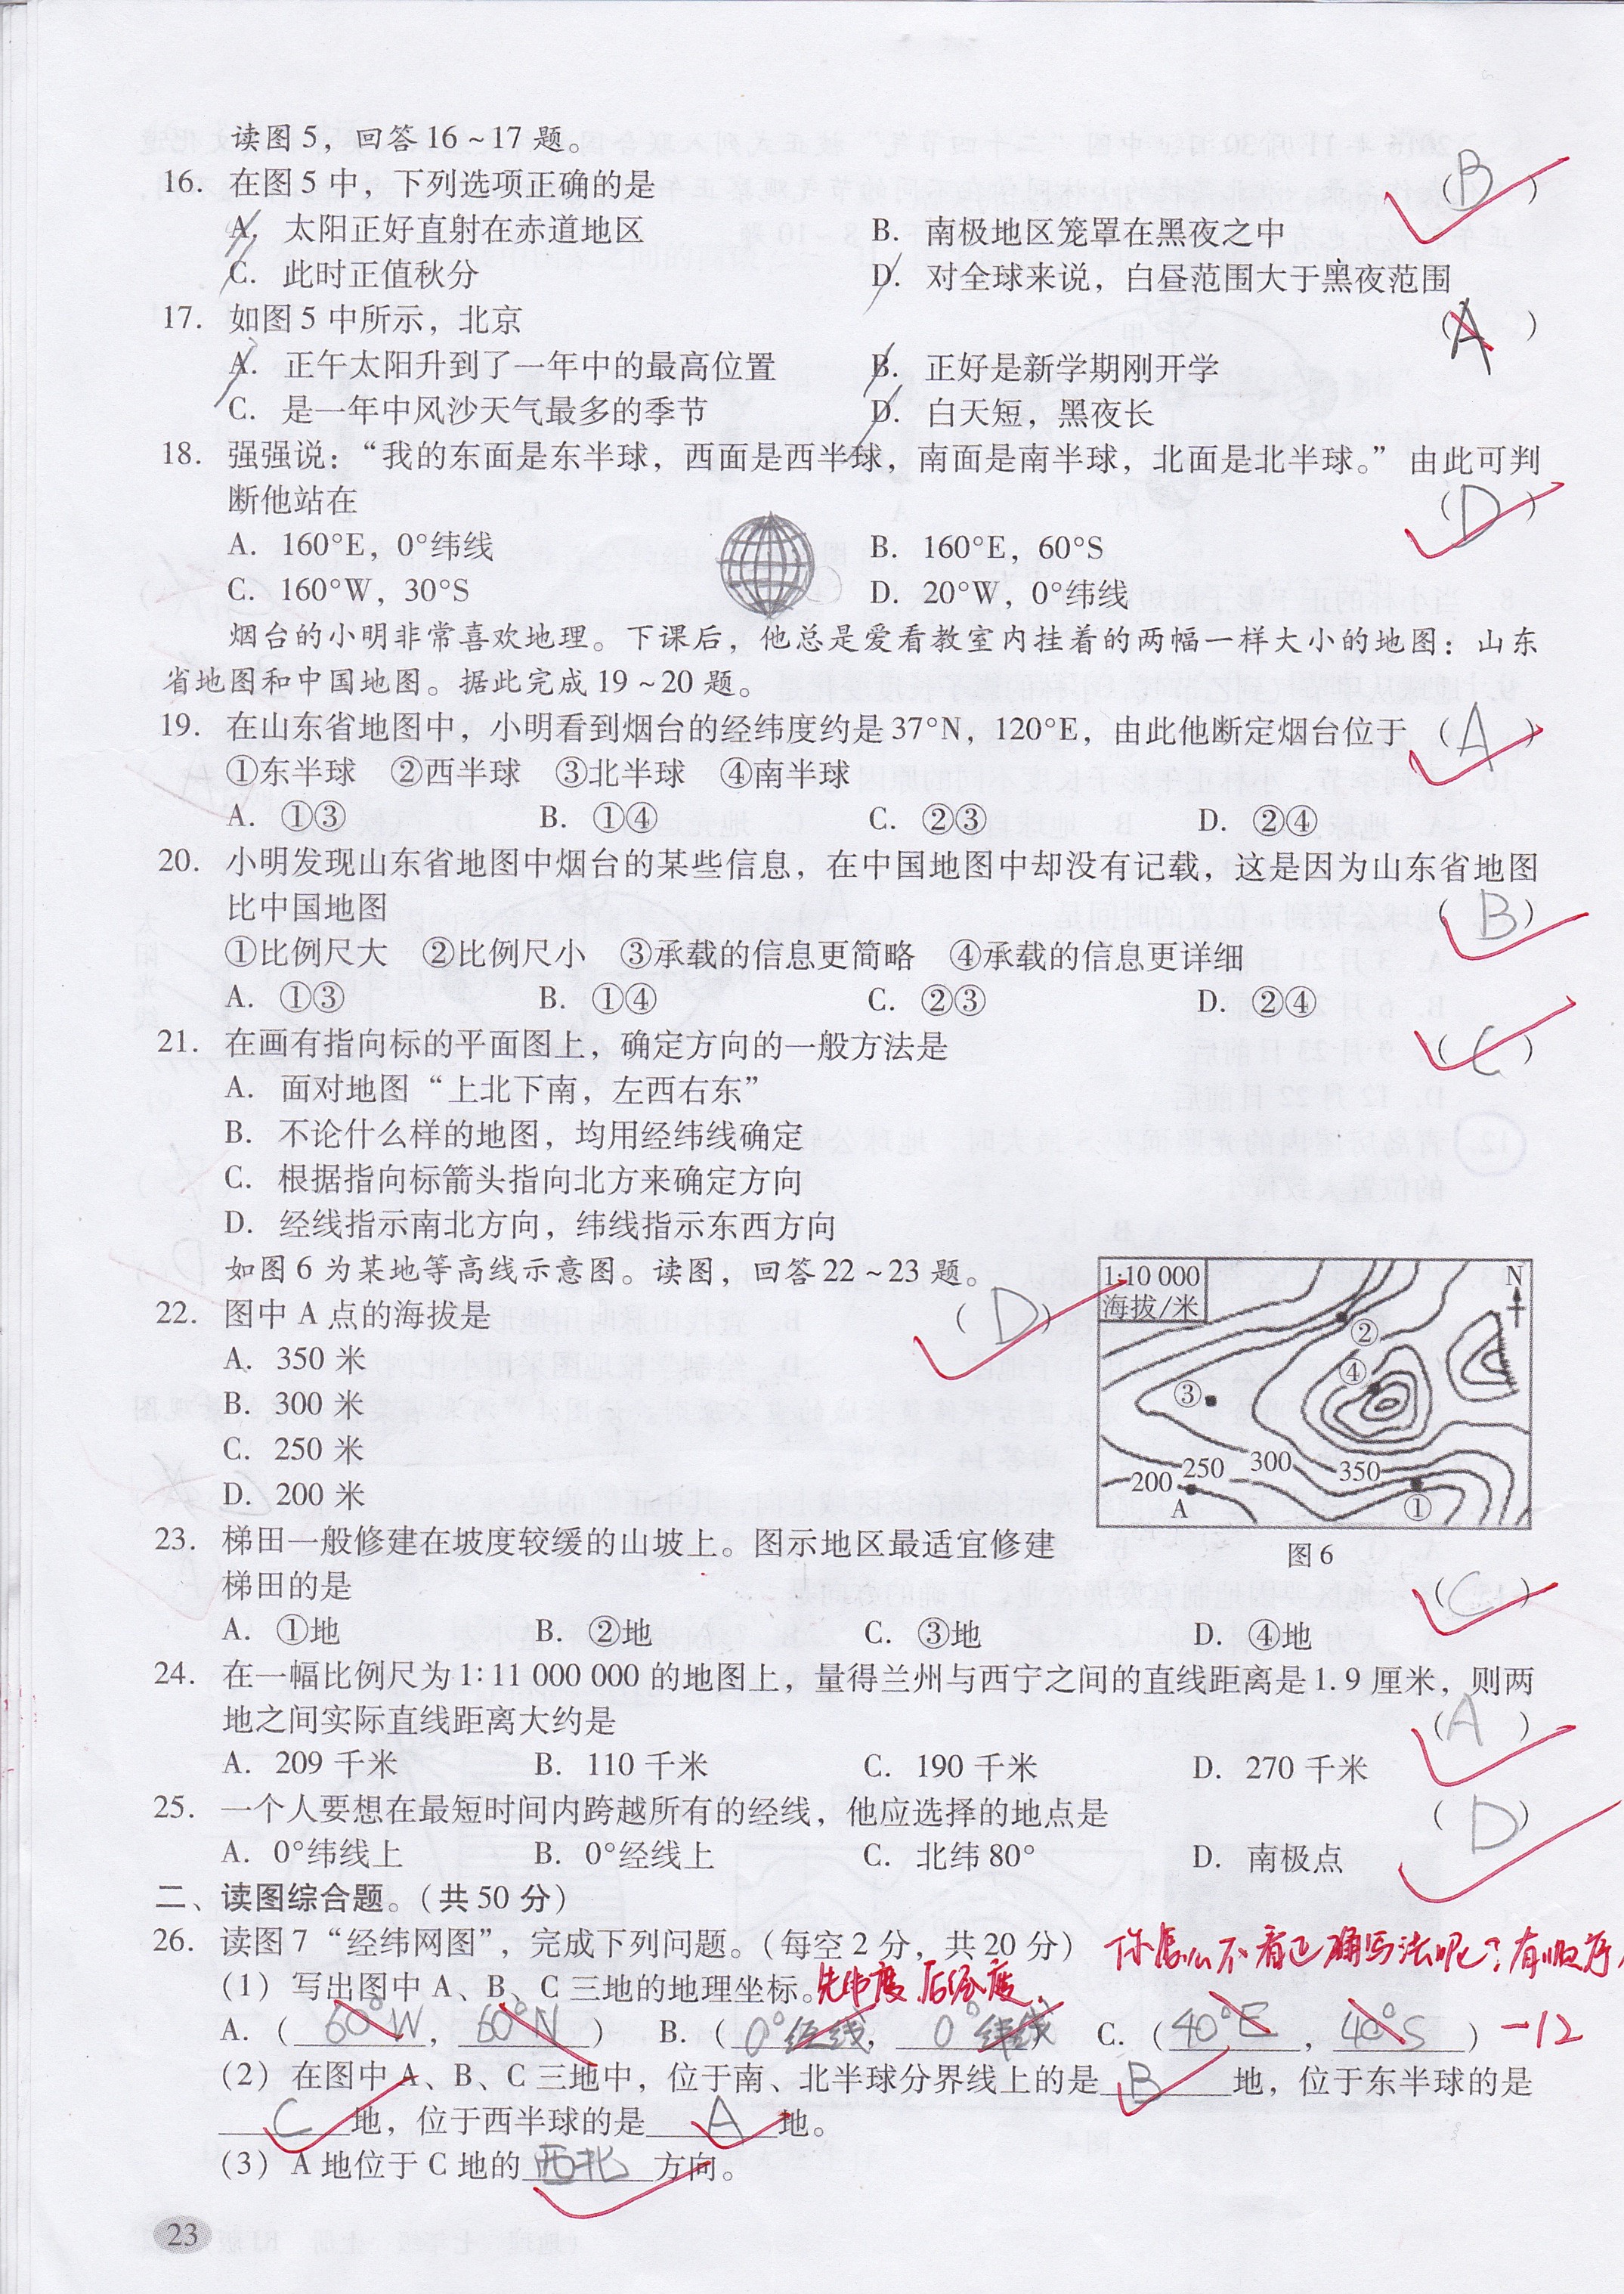 读图5，回答16～17题。
16. 在图5中，下列选项正确的是 （B）
A. 太阳正好直射在赤道地区 B. 南极地区笼罩在黑夜之中
C. 此时正值秋分 D. 对全球来说，白昼范围大于黑夜范围
17. 如图5中所示，北京 （A）
A. 正午太阳升到了一年中的最高位置 B. 正好是新学期刚开学
C. 是一年中风沙天气最多的季节 D. 白天短，黑夜长
18. 强强说：“我的东面是东半球，西面是西半球，南面是南半球，北面是北半球。”由此可判
断他站在 （D）
A. 160°E，0°纬线 B. 160°E，60°S
C. 160°W，30°S D. 20°W，0°纬线
烟台的小明非常喜欢地理。下课后，他总是爱看教室内挂着的两幅一样大小的地图：山东
省地图和中国地图。据此完成19～20题。
19. 在山东省地图中，小明看到烟台的经纬度约是37°N，120°E，由此他断定烟台位于 （A）
①东半球 ②西半球 ③北半球 ④南半球
A. ①③ B. ①④ C. ②③ D. ②④
20. 小明发现山东省地图中烟台的某些信息，在中国地图中却没有记载，这是因为山东省地图
比中国地图 （B）
①比例尺大 ②比例尺小 ③承载的信息更简略 ④承载的信息更详细
A. ①③ B. ①④ C. ②③ D. ②④
21. 在画有指向标的平面图上，确定方向的一般方法是 （C）
A. 面对地图“上北下南，左西右东”
B. 不论什么样的地图，均用经纬线确定
C. 根据指向标箭头指向北方来确定方向
D. 经线指示南北方向，纬线指示东西方向
如图6为某地等高线示意图。读图，回答22～23题。
22. 图中A点的海拔是 （D）
A. 350米
B. 300米
C. 250米
D. 200米
1:10 000
海拔/米
N
②
④
③
200 250 300 350
A ①
图6
23. 梯田一般修建在坡度较缓的山坡上。图示地区最适宜修建
梯田的是 （C）
A. ①地 B. ②地 C. ③地 D. ④地
24. 在一幅比例尺为1∶11 000 000的地图上，量得兰州与西宁之间的直线距离是1.9厘米，则两
地之间实际直线距离大约是 （A）
A. 209千米 B. 110千米 C. 190千米 D. 270千米
25. 一个人要想在最短时间内跨越所有的经线，他应选择的地点是 （D）
A. 0°纬线上 B. 0°经线上 C. 北纬80° D. 南极点
二、读图综合题。（共50分）
26. 读图7“经纬网图”，完成下列问题。（每空2分，共20分） 你怎么不看正确写法呢？有顺序
（1）写出图中A、B、C三地的地理坐标。先纬度、后经度.
A.（60°W，60°N） B.（0°经线，0°纬线） C.（40°E，40°S） -12
（2）在图中A、B、C三地中，位于南、北半球分界线上的是B地，位于东半球的是
C地，位于西半球的是A地。
（3）A地位于C地的西北方向。
23